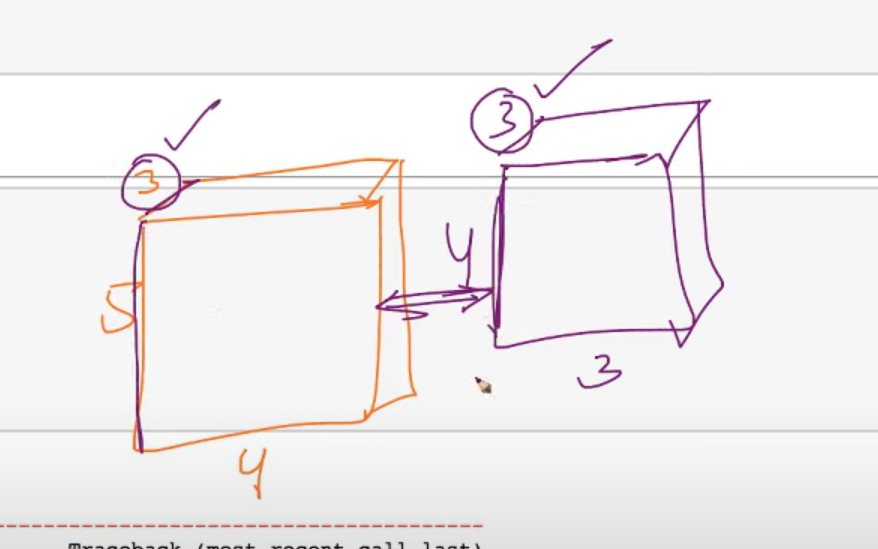 3
3
5
4
4
3
Traceback (most recent call last)